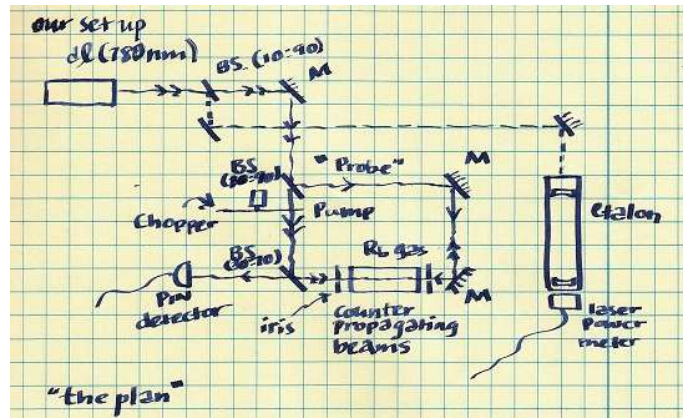 our set up
dl (780nm)
BS (10:90)
M
"Probe"
M
BS
Chopper
Pump
etalon
BS
Rb gas
M
PIN
detector
iris
counter
propagating
beams
laser
power
meter
"the plan"